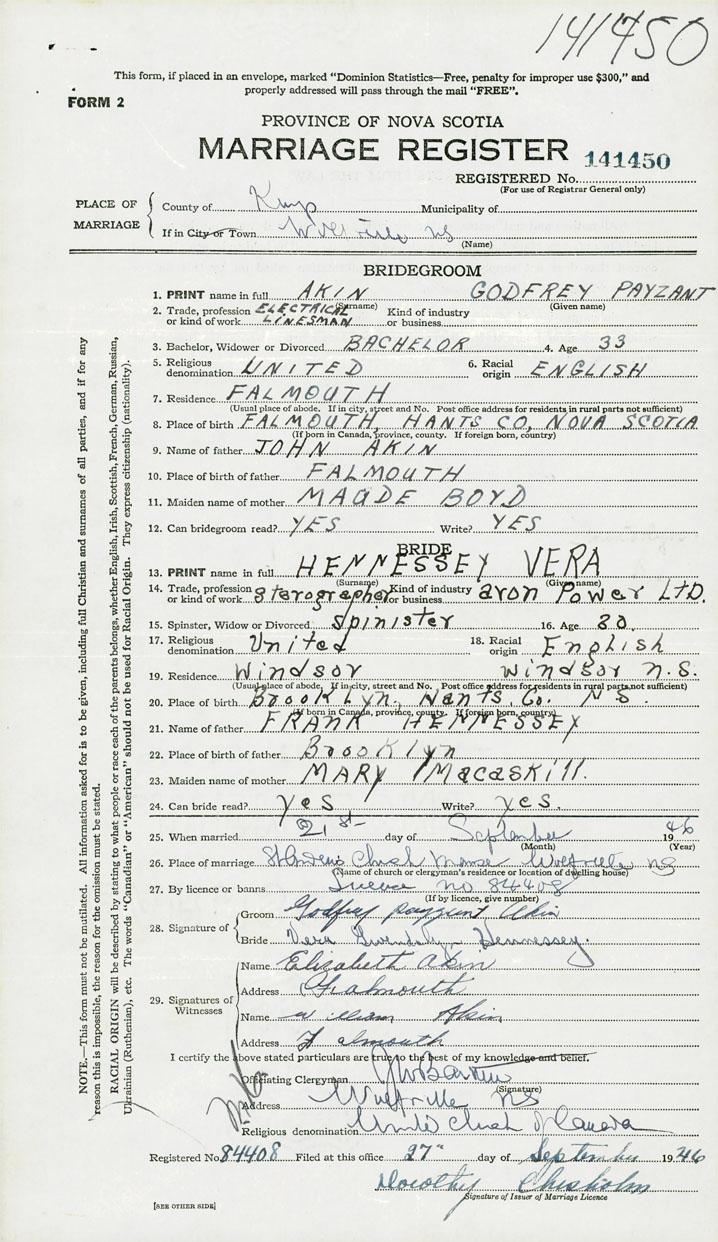 141450
This form, if placed in an envelope, marked "Dominion Statistics—Free, penalty for improper use $300," and
properly addressed will pass through the mail "FREE".
FORM 2
PROVINCE OF NOVA SCOTIA
MARRIAGE REGISTER 141450
REGISTERED No.
(For use of Registrar General only)
PLACE OF MARRIAGE
County of Kings Municipality of
If in City or Town Wolfville NS
(Name)
BRIDEGROOM
1. PRINT name in full AKIN GODFREY PAYZANT
(Surname) (Given name)
2. Trade, profession or kind of work ELECTRICAL LINESMAN Kind of industry or business
3. Bachelor, Widower or Divorced BACHELOR 4. Age 33
5. Religious denomination UNITED 6. Racial origin ENGLISH
7. Residence FALMOUTH
(Usual place of abode. If in city, street and No. Post office address for residents in rural parts not sufficient)
8. Place of birth FALMOUTH, HANTS CO, NOVA SCOTIA
(If born in Canada, province, county. If foreign born, country)
9. Name of father JOHN AKIN
10. Place of birth of father FALMOUTH
11. Maiden name of mother MAUDE BOYD
12. Can bridegroom read? YES Write? YES
BRIDE
13. PRINT name in full HENNESSEY VERA
(Surname) (Given name)
14. Trade, profession or kind of work sterographer Kind of industry or business avon Power LTD.
15. Spinster, Widow or Divorced Spinister 16. Age 20.
17. Religious denomination United 18. Racial origin English
19. Residence Windsor Windsor N.S.
(Usual place of abode. If in city, street and No. Post office address for residents in rural parts not sufficient)
20. Place of birth Brooklyn, Hants. Co. N S.
(If born in Canada, province, county. If foreign born, country)
21. Name of father FRANK HENNESSEY
22. Place of birth of father Brooklyn
23. Maiden name of mother MARY Macaskill.
24. Can bride read? yes Write? yes.
25. When married 21st day of September 1946
(Month) (Year)
26. Place of marriage St Andrews Church Manse Wolfville NS
(Name of church or clergyman's residence or location of dwelling house)
27. By licence or banns Licence no 84408
(If by licence, give number)
28. Signature of
Groom Godfrey payzant Akin
Bride Vera Gwendolyn Hennessey.
29. Signatures of Witnesses
Name Elizabeth Akin
Address Falmouth
Name william Akin
Address Falmouth
I certify the above stated particulars are true to the best of my knowledge and belief.
Officiating Clergyman
(Signature)
Address Wolfville NS
Religious denomination United Church of Canada
Registered No. 84408 Filed at this office 27" day of September 1946
Dorothy Chisholm
Signature of Issuer of Marriage Licence
[SEE OTHER SIDE]
NOTE.—This form must not be mutilated. All information asked for is to be given, including full Christian and surnames of all parties, and if for any
reason this is impossible, the reason for the omission must be stated.
RACIAL ORIGIN will be described by stating to what people or race each of the parents belongs, whether English, Irish, Scottish, French, German, Russian,
Ukrainian (Ruthenian), etc. The words "Canadian" or "American" should not be used for Racial Origin. They express citizenship (nationality).